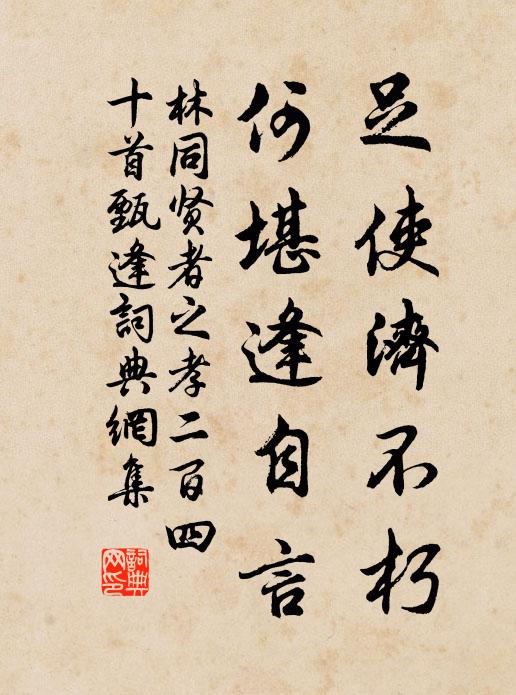 足使濟不朽
何堪逢自言
林同贤者之孝二百四
十首甄逢詞典網集
詞典
网印